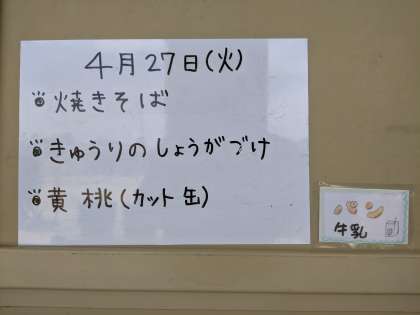 4月27日(火)
焼きそば
きゅうりのしょうがづけ
黄桃(カット缶)
パン
牛乳